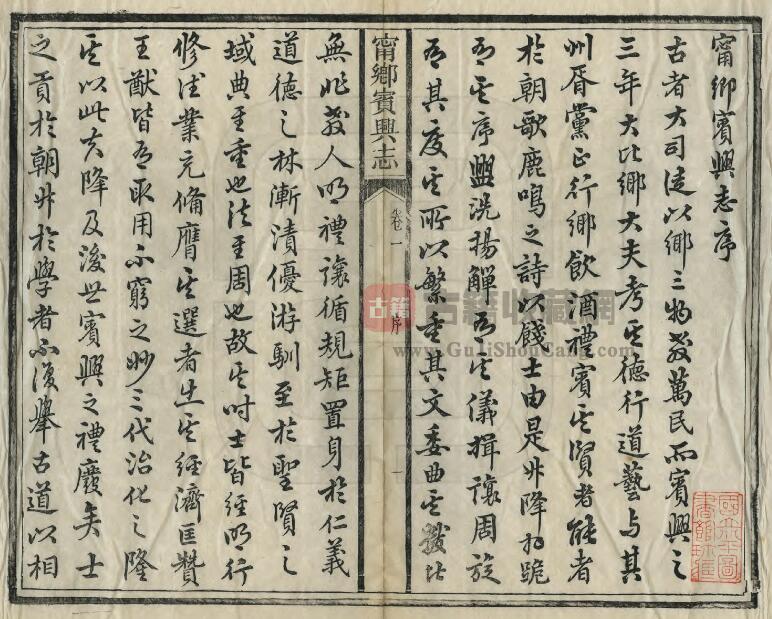 甯鄉賓興志序
古者大司徒以鄉三物教萬民而賓興之
三年大比鄉大夫考其德行道藝與其
州胥黨正行鄉飲酒禮賓其賢者能者
於朝歌鹿鳴之詩以餞士由是升降拜跪
有其序盥洗揚觶有其儀揖讓周旋
有其度其所以繁重其文委曲其
甯鄉賓興志
卷一
序
一
無非教人明禮讓循規矩置身於仁義
道德之林漸漬優游馴至於聖賢之
域典至重也法至周也故其時士皆經明行
修法業充備膺其選者出其經濟匡贊
王猷皆有取用不窮之妙三代治化之隆
其以此矣降及後世賓興之禮廢矣士
之貢於朝升於學者不復舉古道以相
古籍
古籍收藏網
www.GuJiShouCang.com